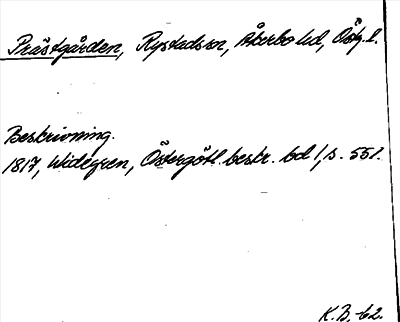 Prästgården, Rystads sn, Åkerbo hd, Östg. l.
Beskrivning.
1817, Widegren, Östergötl. beskr. bd 1, s. 551.
K.B. 62.